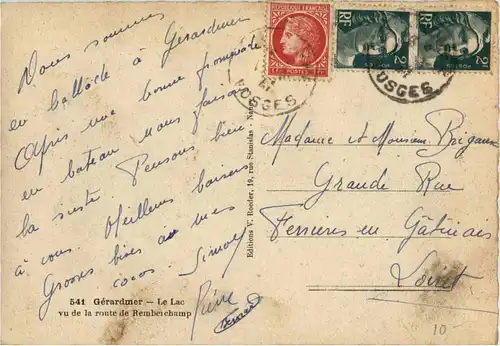 Nous sommes
en ballade à Gérardmer
Après une bonne promenade
en bateau nous faisons
la sieste. Pensons bien
à vous. Meilleurs baisers
Grosses bises à mes
cocos. Simone
Pierre
541 Gérardmer — Le Lac
vu de la route de Remberchamp
Editions V. Roeder, 19, rue Stanislas - Nancy
RF
POSTES
RF
2
RF
2
VOSGES
VOSGES
Madame et Monsieur
Grande Rue
Ferrières en Gâtinais
Loiret
10